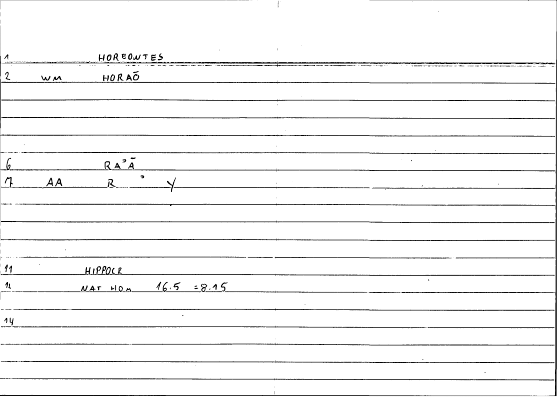 1 HOREONTES
2 WM HORAÕ
6 RA°Ã
7 AA R ° Y
11 HIPPOCR
12 NAT HOM 16.5 =8.15
14